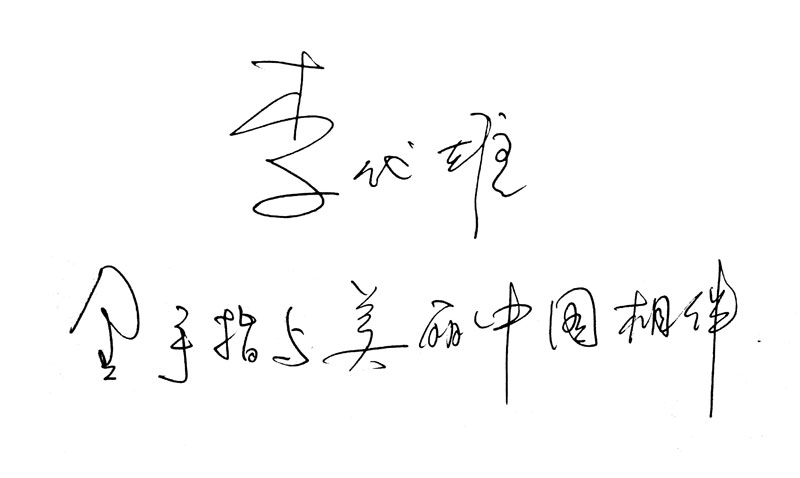 李代雄
金手指与美丽中国相伴.